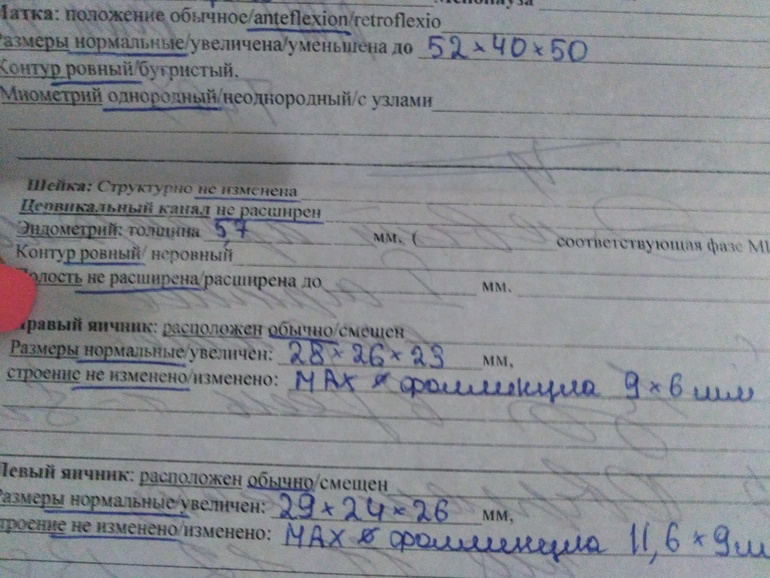 Менопауза
Матка: положение обычное/anteflexion/retroflexio
Размеры нормальные/увеличена/уменьшена до 52×40×50
Контур ровный/бугристый.
Миометрий однородный/неоднородный/с узлами
Шейка: Структурно не изменена
Цервикальный канал не расширен
Эндометрий: толщина 57 мм. ( соответствующая фазе МЦ
Контур ровный/ неровный
Полость не расширена/расширена до мм.
Правый яичник: расположен обычно/смещен
Размеры нормальные/увеличен: 28×26×23 мм,
строение не изменено/изменено: МАХ фолликула 9×6 мм
Левый яичник: расположен обычно/смещен
Размеры нормальные/увеличен: 29×24×26 мм,
строение не изменено/изменено: МАХ фолликула 11,6×9 м